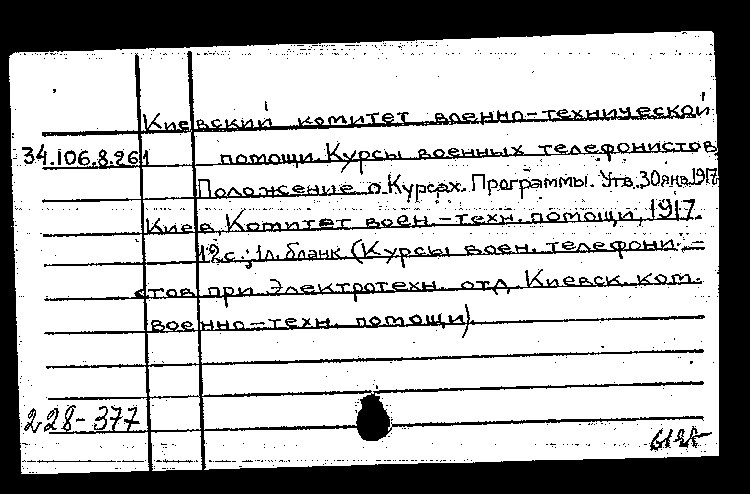 Киевский комитет военно-технической
34.106.8.261 помощи. Курсы военных телефонистов
Положение о Курсах. Программы. Утв. 30 янв. 1917
Киев, Комитет воен.-техн. помощи, 1917.
12 с.; 1 л. бланк (Курсы воен. телефони-
стов при Электротехн. отд. Киевск. ком.
военно-техн. помощи).
228-377